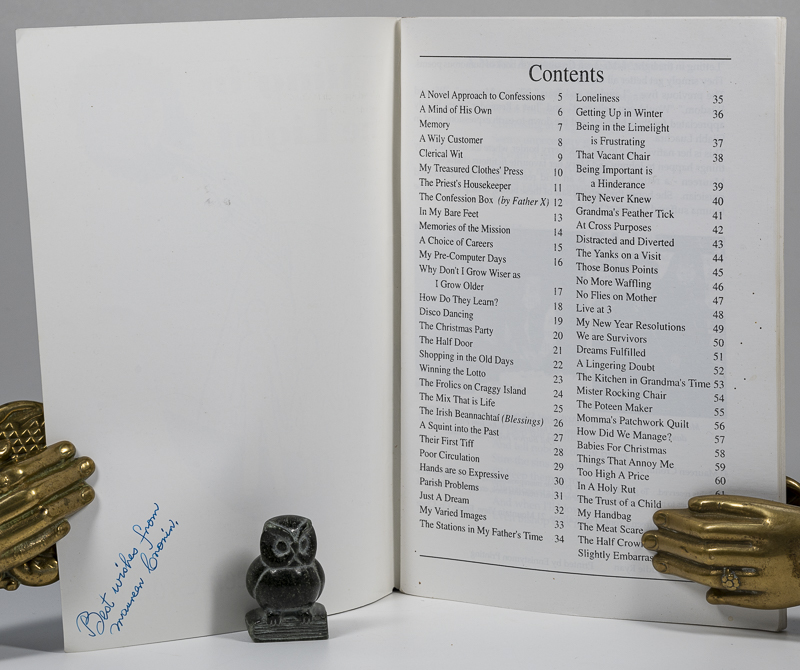 Best wishes from
Maureen Cronin.
Contents
A Novel Approach to Confessions 5
A Mind of His Own 6
Memory 7
A Wily Customer 8
Clerical Wit 9
My Treasured Clothes' Press 10
The Priest's Housekeeper 11
The Confession Box (by Father X) 12
In My Bare Feet 13
Memories of the Mission 14
A Choice of Careers 15
My Pre-Computer Days 16
Why Don't I Grow Wiser as
I Grow Older 17
How Do They Learn? 18
Disco Dancing 19
The Christmas Party 20
The Half Door 21
Shopping in the Old Days 22
Winning the Lotto 23
The Frolics on Craggy Island 24
The Mix That is Life 25
The Irish Beannachtaí (Blessings) 26
A Squint into the Past 27
Their First Tiff 28
Poor Circulation 29
Hands are so Expressive 30
Parish Problems 31
Just A Dream 32
My Varied Images 33
The Stations in My Father's Time 34
Loneliness 35
Getting Up in Winter 36
Being in the Limelight
is Frustrating 37
That Vacant Chair 38
Being Important is
a Hinderance 39
They Never Knew 40
Grandma's Feather Tick 41
At Cross Purposes 42
Distracted and Diverted 43
The Yanks on a Visit 44
Those Bonus Points 45
No More Waffling 46
No Flies on Mother 47
Live at 3 48
My New Year Resolutions 49
We are Survivors 50
Dreams Fulfilled 51
A Lingering Doubt 52
The Kitchen in Grandma's Time 53
Mister Rocking Chair 54
The Poteen Maker 55
Momma's Patchwork Quilt 56
How Did We Manage? 57
Babies For Christmas 58
Things That Annoy Me 59
Too High A Price 60
In A Holy Rut 61
The Trust of a Child
My Handbag
The Meat Scare
The Half Crow
Slightly Embarras